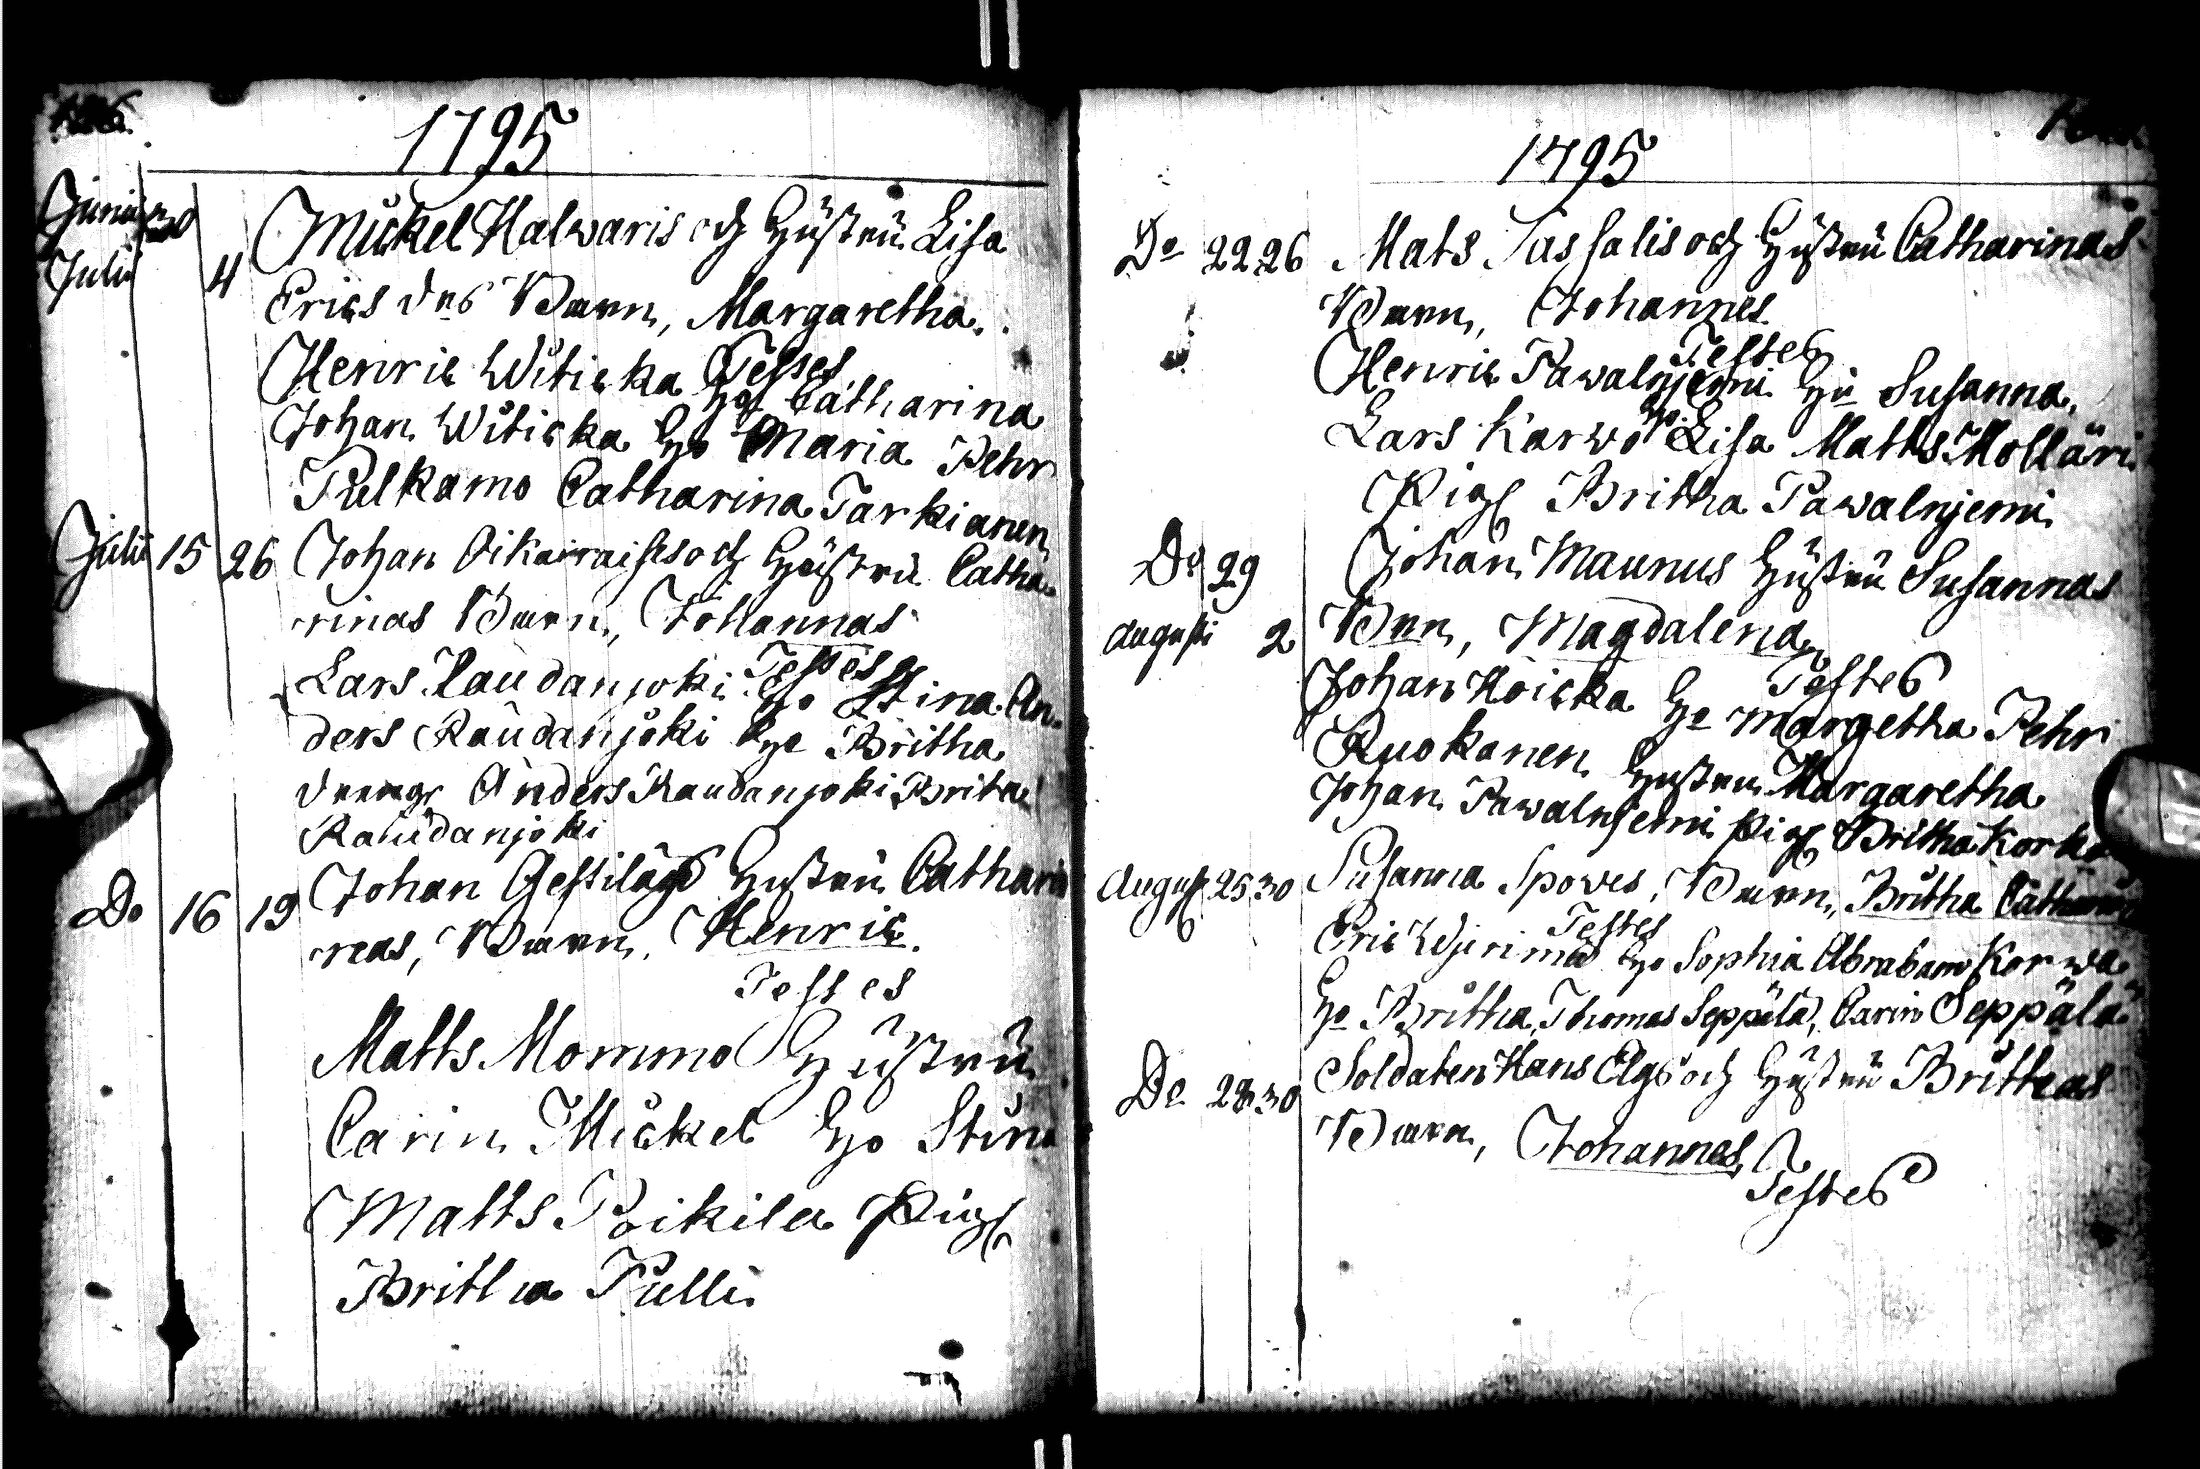 1795
Junii 30 Mickel Halwaris och Hustru Lisa
Julii 4
Erics drs Barn, Margaretha
Testes
Henric Witicka Ho Catharina
Johan Witicka Ho Maria Pehr
Pulkamo Catharina Tarkianen
Julii 15 26 Johan Oikaraises och Hustru Catha
rinas Barn, Johannas
Testes
Lars Raudanjoki Ho Stina An
ders Raudanjoki Ho Britha
dreng Anders Raudanjoki Brita
Raudanjoki
Do 16 19 Johan Hustru Cathari
nas, Barn, Henric
Testes
Matts Mommo Hustru
Carin Mickel Ho Stina
Matts Poikila Pig
Britha Pulli
1795
Do 22 26 Mats Sassalis och Hustru Catharinas
Barn, Johannes
Testes
Henric Pawalnjemi Hu Susanna
Lars Karwo Ho Lisa Matts Molläri
Pig Britha Pawalnjemi
Do 29 Johan Maunus Hustru Susannas
Augusti 2 Barn, Magdalena
Testes
Johan Hoicka Ho Margetha Pehr
Ruokanen Hustru Margaretha
Johan Pawalnjemi pig Britha
August 25 30 Susanna Spowes, Barn, Britha Catharina
Testes
Eric Ho Sophia Abraham Korwa
Ho Britha, Thomas Seppälä, Carin Seppälä
Do 28 30 Soldaten Hans Elgs och Hustru Brithas
Barn, Johannes
Testes